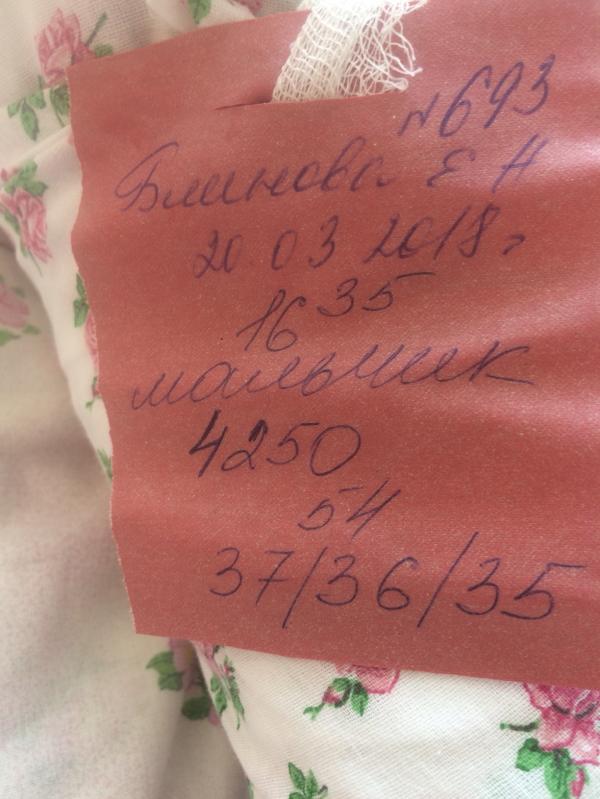 №693
Блинова Е Н
20 03 2018г
16 35
мальчик
4250
54
37/36/35